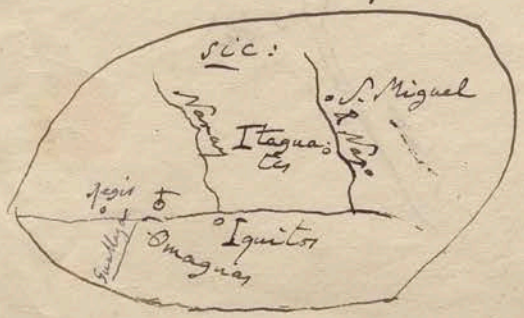 sic:
S. Miguel
Nanay
R Napo
Itagua:
tes
Regis
Iquitos
Omaguas
Guallaga